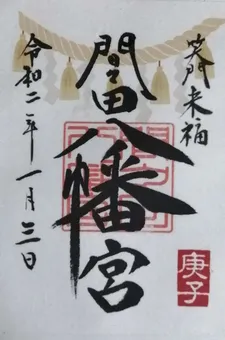 笑門来福
間々田八幡宮
令和二年一月三日
庚子